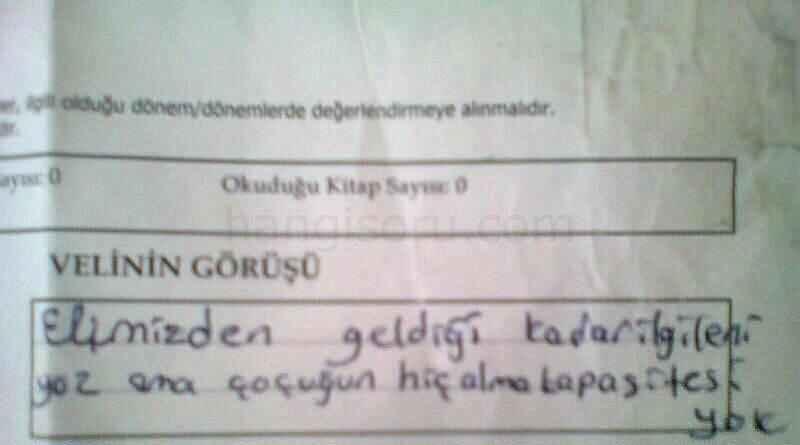 ilgili olduğu dönem/dönemlerde değerlendirmeye alınmalıdır.
ayısı: 0 Okuduğu Kitap Sayısı: 0
hangisoru.com
VELİNİN GÖRÜŞÜ
Elimizden geldiği kadar ilgileni
yoz ama çoçuğun hiç alma kapasitesi
yok